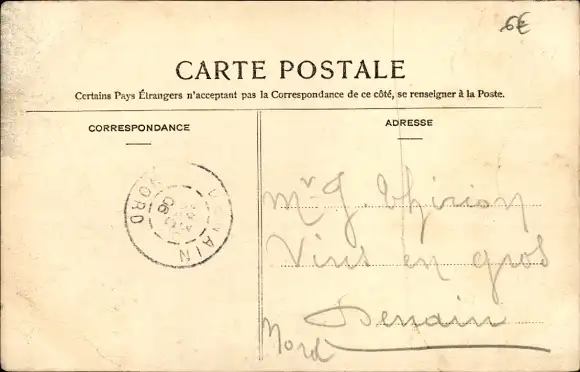 6€
CARTE POSTALE
Certains Pays Étrangers n'acceptant pas la Correspondance de ce côté, se renseigner à la Poste.
CORRESPONDANCE
ADRESSE
DENAIN
NORD
06
Mr G. Thirion
Vins en gros
Denain
Nord